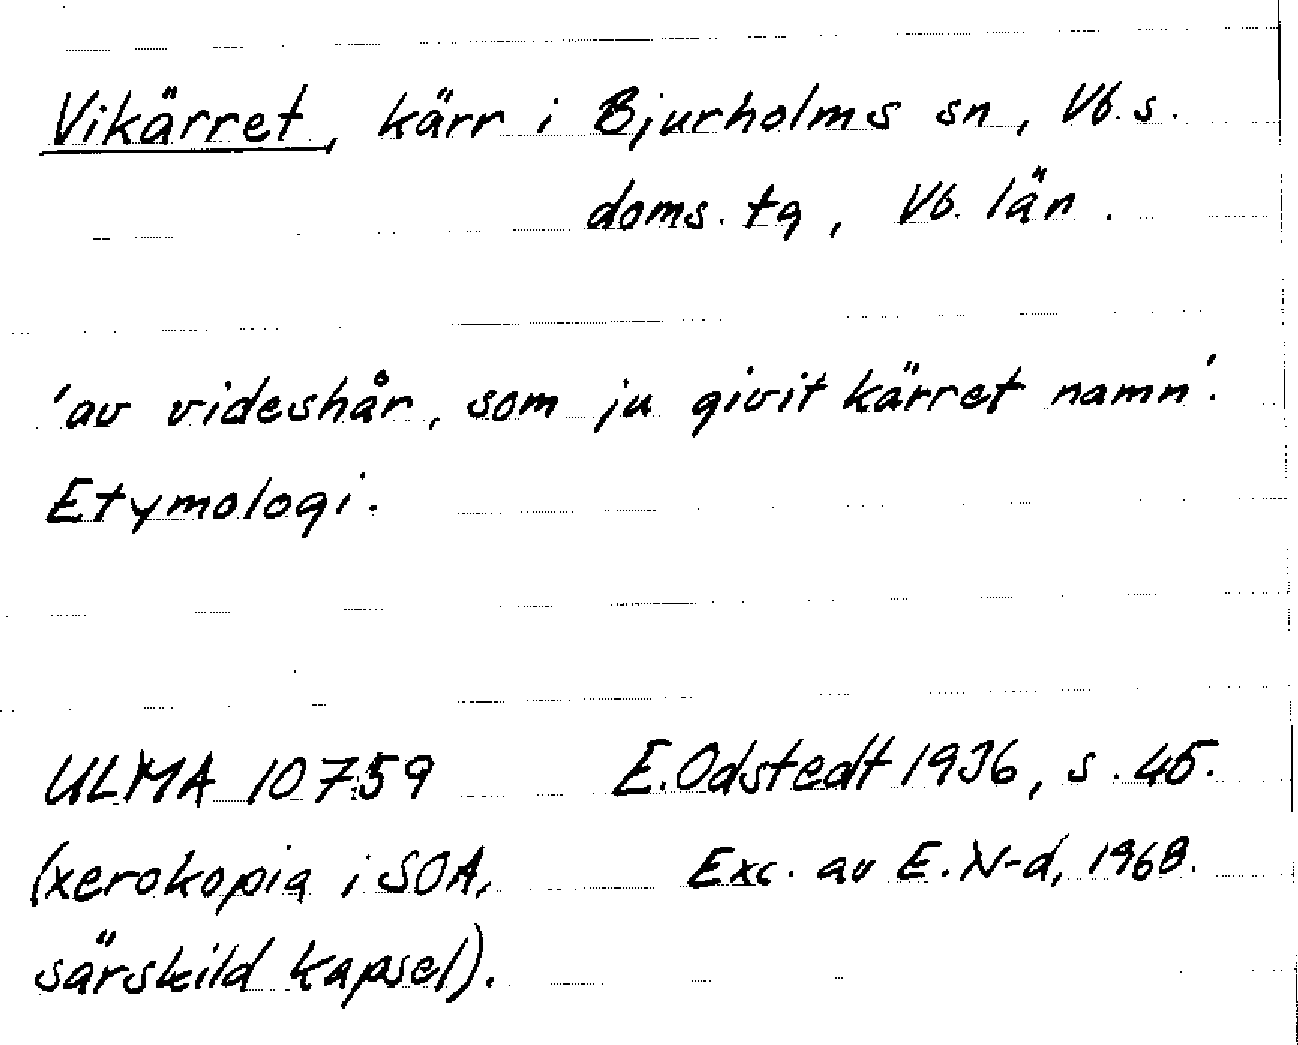 Vikärret, kärr i Bjurholms sn, Vb. s.
doms. tg, Vb. län.
'av videshår, som ju givit kärret namn'.
Etymologi.
ULMA 10759 E. Odstedt 1936, s. 45.
(xerokopia i SOA, Exc. av E. N-d, 1968.
särskild kapsel).